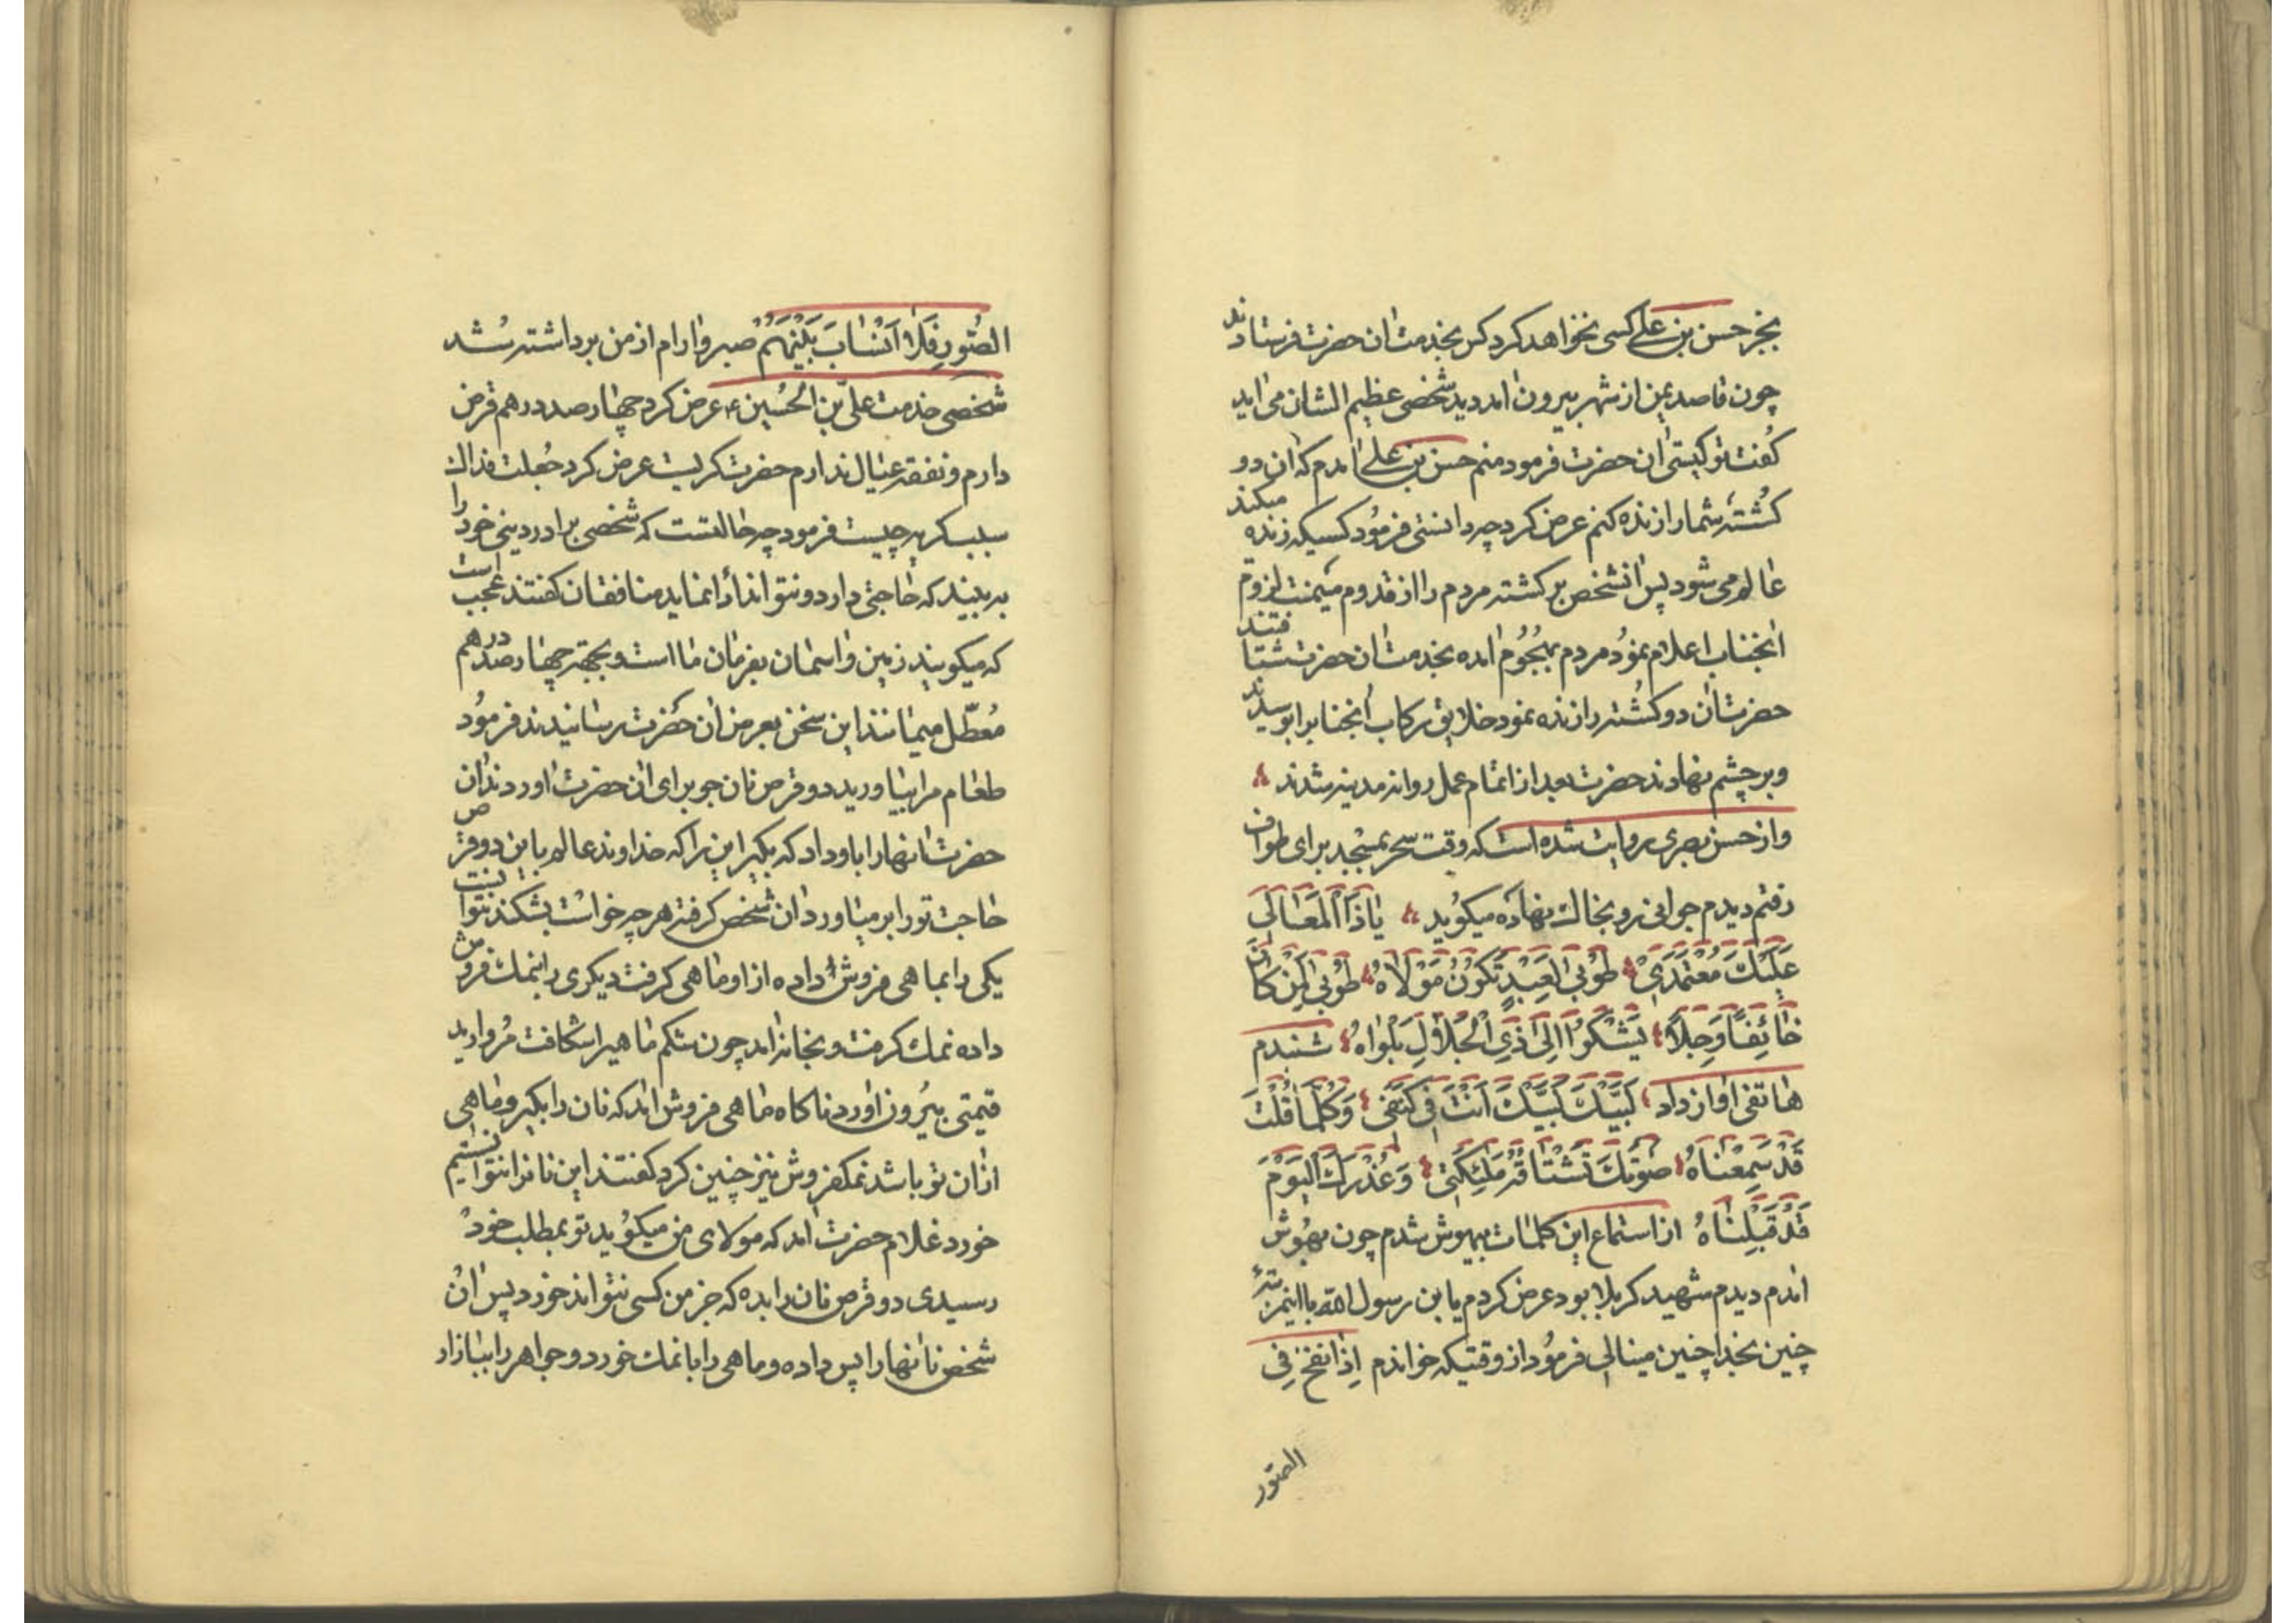 بجز حسن بن علی کسی نخواهد کرد کس بخدمت ان حضرت فرستادند
چون قاصد یمن از شهر بیرون امد دید شخصی عظیم الشان می اید
کفت تو کیستی ان حضرت فرمود منم حسن بن علی امدم که ان دو
کُشته شما را زنده کنم عرض کرد چه دانستی فرمُود کسیکه زنده میکند
عالم می شود پس انشخص برکشته مردم را از قدوم میمنت لزوم
انجناب اعلام نمود مردم بهجُوم امده بخدمت ان حضرت شتافتند
حضرت ان دو کُشته را زنده نمود خلایق رکاب انجناب را بوسیدند
و بر چشم نهادند حضرت بعد از اتمام عمل روانه مدینه شدند
و از حسن بصری روایت شده است که وقت سحر بمسجد برای طواف
رفتم دیدم جوانی رو بخاک نهاده میکوید یَا ذَا الْمَعَالَی
عَلَیْكَ مُعْتَمَدَی طُوْبی لِعَبْدٍ تَکُوْنُ مَوْلَاهُ طُوْبی لِمَنْ کَانَ
خَائِفًا وَجِلًا یَشْکُوْا اِلی ذِی الْجَلَالِ بَلْوَاهُ شنیدم
هاتفی اواز داد لَبَّیْكَ لَبَّیْكَ اَنْتَ فِی کَنَفی وَکُلَّمَا قُلْتَ
قَدْ سَمِعْنَاهُ صَوْتُكَ تَشْتَاقُهُ مَلئِکَتی وَعُذْرُكَ الْیَوْمَ
قَدْ قَبِلْنَاهُ از استماع این کلمات بیهوش شدم چون بهوش
امدم دیدم شهید کربلا بود عرض کردم یابن رسول الله با اینمرتبهٔ
چنین بخدا چنین مینالی فرمُود از وقتیکه خواندم اِذَا نفخ فِی
الصّور
الصُّورِ فَلَا اَنْسَابَ بَیْنَهُمْ صبر و ارام از من برداشته شد
شخصی خدمت علی بن الحُسین ع عرض کرد چهار صد درهم قرض
دارم و نفقه عیال ندارم حضرت کریست عرض کرد جُعلت فداك
سبب کریه چیست فرمود چه حالتست که شخصی برادر دینی خود را
به بیند که حاجتی دارد و نتواند ادا نماید منافقان کفتند عجب است
که میکویند زمین و اسمان بفرمان ما است و بجهة چهار صد درهم
مُعطّل میمانند این سخن بعرض ان حضرت رسانیدند فرمُود
طعام مرا بیاورید دو قرص نان جو برای ان حضرت اوردند ان
حضرت انها را باو داد که بکیر این را که خداوند عالم باین دو قرص
حاجت تو را بر میاورد ان شخص کرفته هر چه خواست بشکند نتوانست
یکی را بماهی فروش داده از او ماهی کرفت دیکری را بنمك فروش
داده نمك کرفت و بخانه امد چون شکم ماهی را شکافت مُروارید
قیمتی بیرُون اورد ناکاه ماهی فروش امد که نان را بکیر و ماهی
ازان تو باشد نمکفروش نیز چنین کرد کفتند این نانرا نتوانستیم
خورد غلام حضرت امد که مولای من میکوید تو بمطلب خود
رسیدی دو قرص نان را بده که جز من کسی نتواند خورد پس ان
شخص نانها را پس داده و ماهی را با نمك خورد و جواهر را ببازار